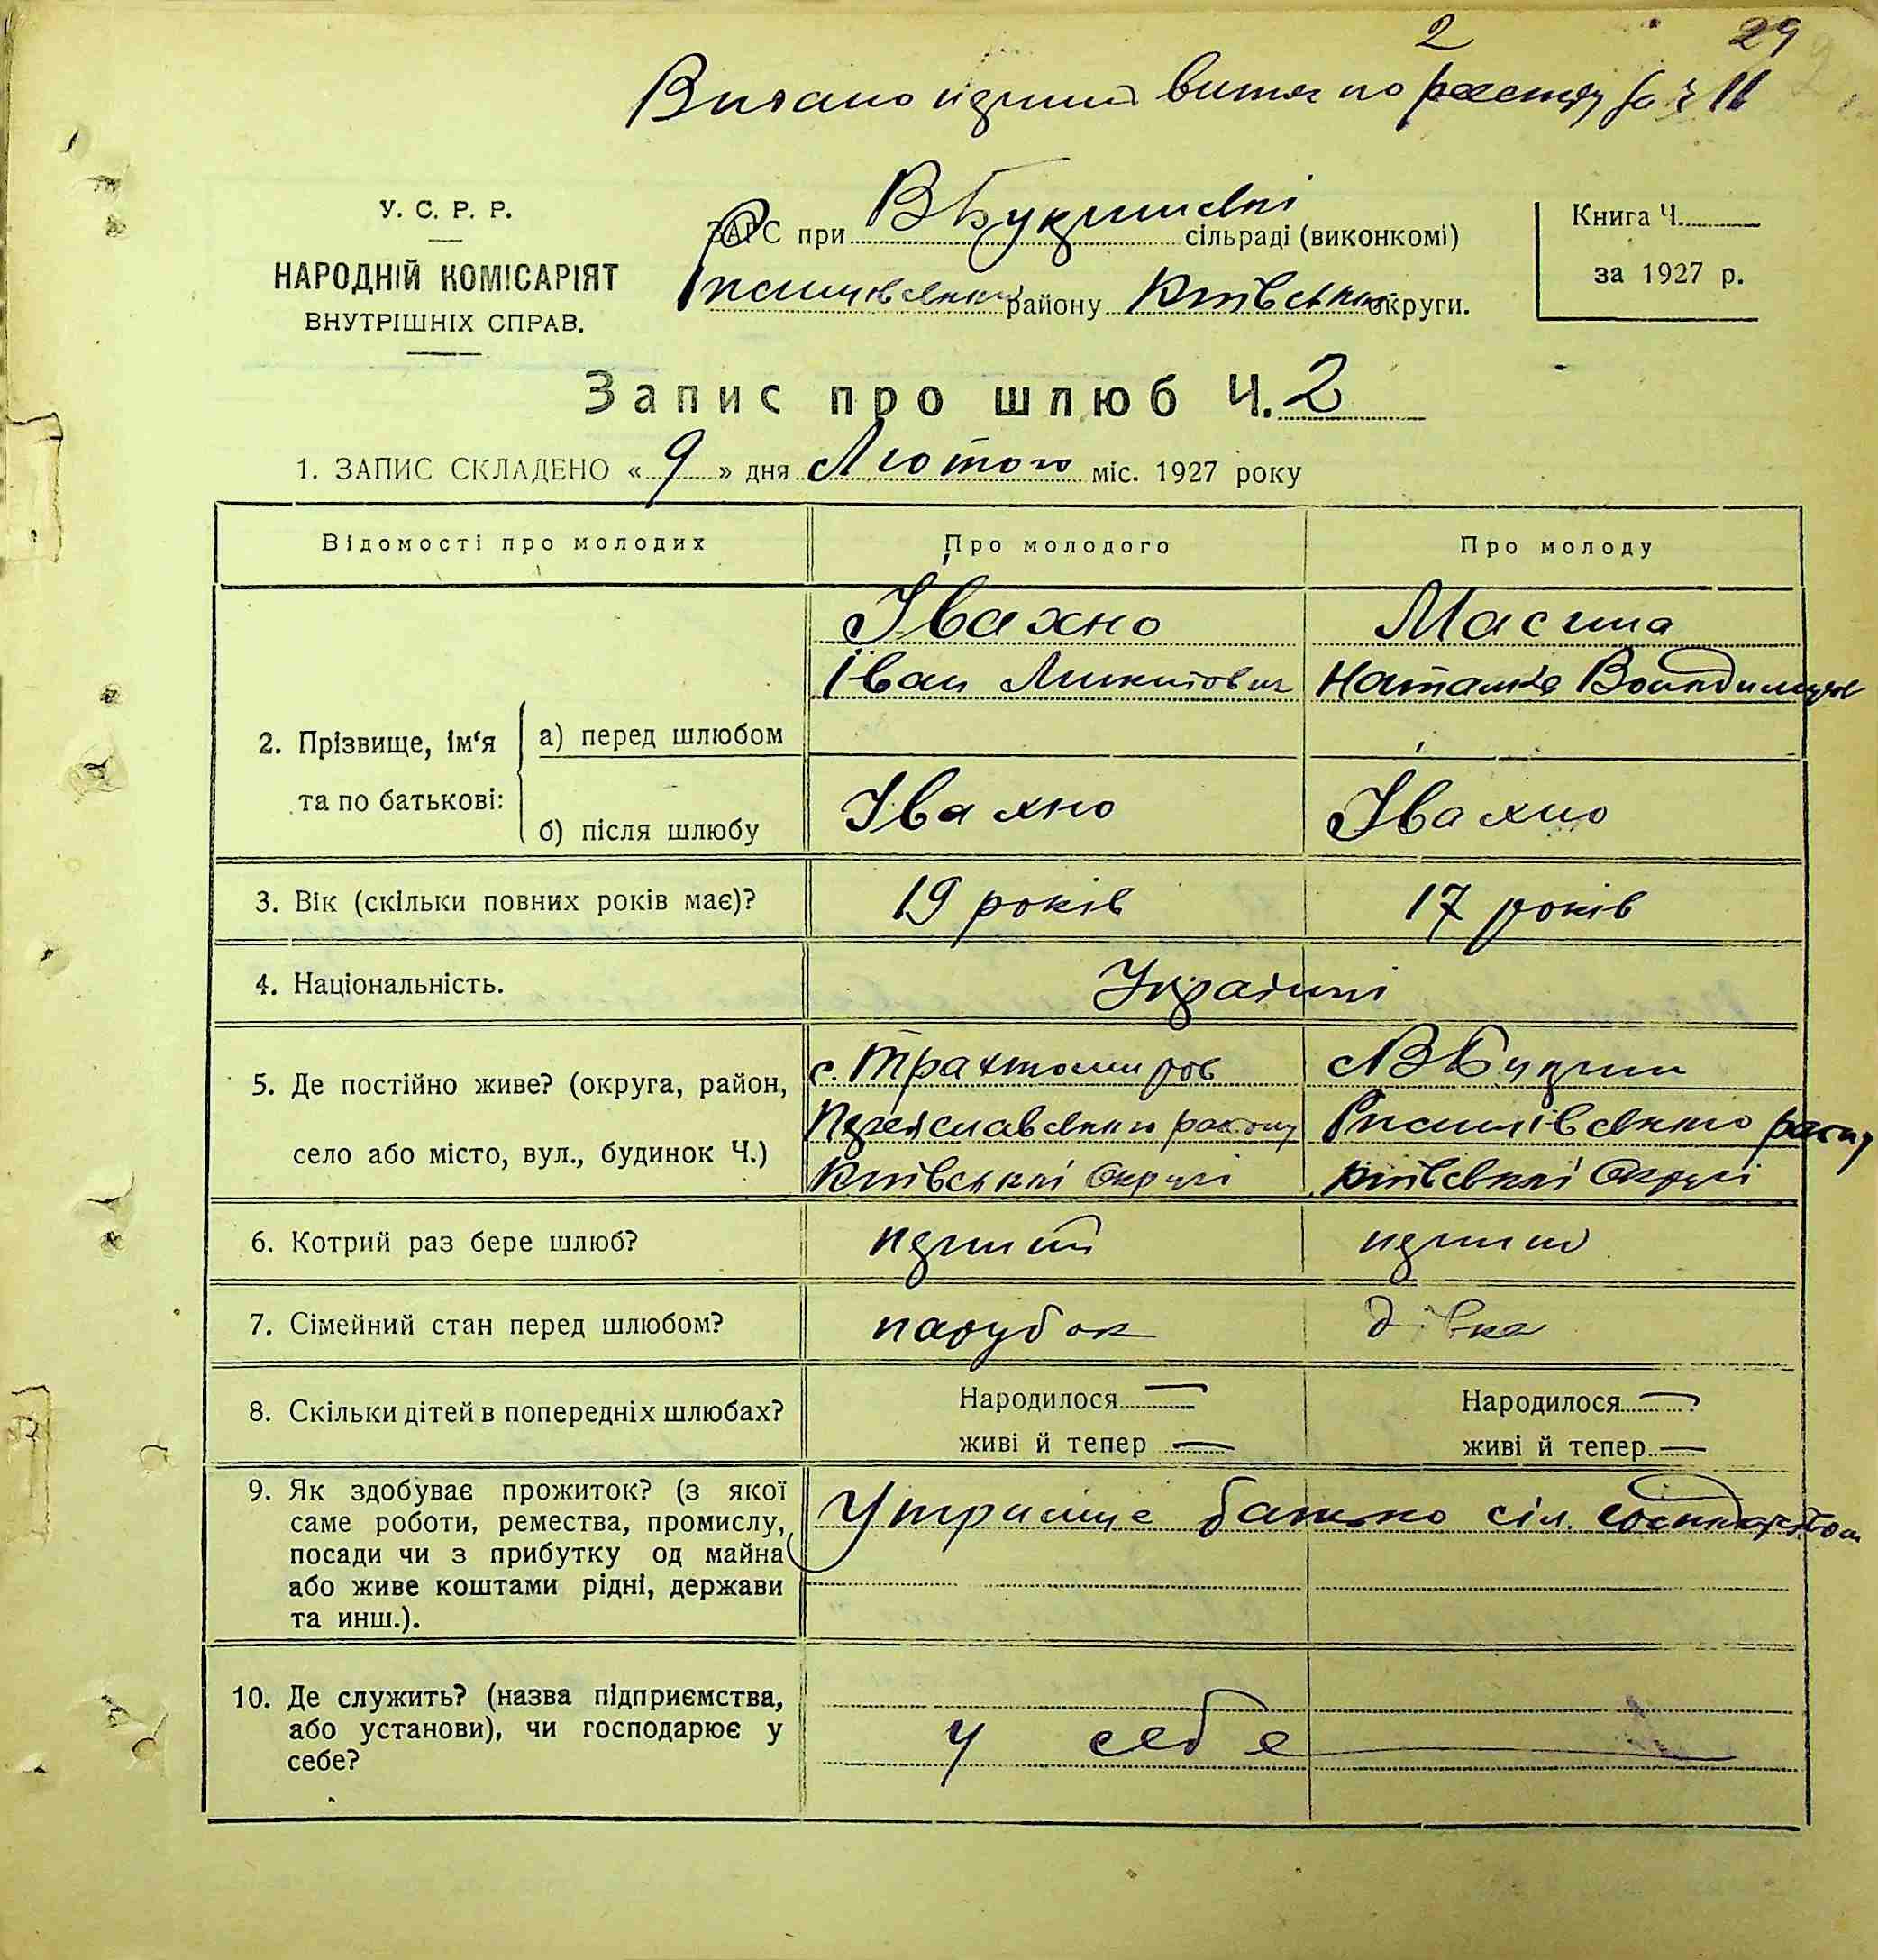 2 29
Видано перший витяг по реєстру за № 11
У. С. Р. Р.
НАРОДНІЙ КОМІСАРІЯТ
ВНУТРІШНІХ СПРАВ.
ЗАГС при В Букринські сільраді (виконкомі)
району Київської округи.
Книга Ч.
за 1927 р.
Запис про шлюб Ч. 2
1. ЗАПИС СКЛАДЕНО « 9 » дня Лютого міс. 1927 року
Відомості про молодих Про молодого Про молоду
Івахно Масима
Іван Микитович Наталка
2. Прізвище, ім'я а) перед шлюбом
та по батькові: б) після шлюбу
Івахно Івахно
3. Вік (скільки повних років має)? 19 років 17 років
4. Національність. Українці
5. Де постійно живе? (округа, район, село або місто, вул., будинок Ч.)
с. Трахтомиров с В Букрин
Переяславського району району
Київської Округи Київської Округи
6. Котрий раз бере шлюб? перший перший
7. Сімейний стан перед шлюбом? парубок дівка
8. Скільки дітей в попередніх шлюбах? Народилося — Народилося —
живі й тепер — живі й тепер —
9. Як здобуває прожиток? (з якої
саме роботи, ремества, промислу,
посади чи з прибутку од майна
або живе коштами рідні, держави
та инш.).
Утримує батько сіл.
10. Де служить? (назва підприємства,
або установи), чи господарює у
себе?
у себе